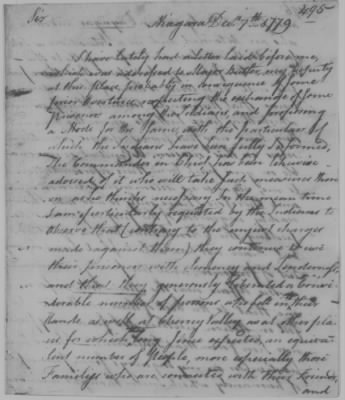 495
Sir Niagara Decr. 7th 1779
I have lately had a letter laid before me,
which was addressed to Major Butler, my Deputy
at this place, probably in consequence of some
prior Overtures respecting the exchange of some
Prisoners among the Indians and proposing
a Mode for the same, with the particulars of
which the Indians have been fully informed,
The Commander in Chief has been likewise
advised of it who will take such measures there
on as he thinks necessary. In the mean time
I am particularly requested by the Indians to
observe that (contrary to the unjust charges
made against them) they continue to use
their prisoners with clemency and tenderness,
and that they generously liberated a consi-
derable number of persons who fell in their
hands as well at Cherry Valley as at other pla-
ces for which they long since expected, an equiva-
lent number of People, more especially those
Families who are connected with their Friends,
and